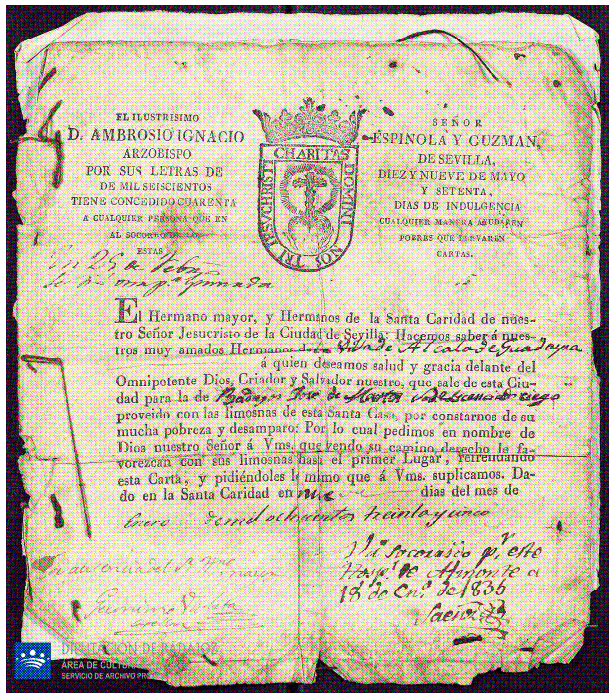 EL ILUSTRISIMO
D. AMBROSIO IGNACIO
ARZOBISPO
POR SUS LETRAS DE
DE MIL SEISCIENTOS
TIENE CONCEDIDO CUARENTA
A CUALQUIER PERSONA QUE EN
AL SOCORRO DE LOS
ESTAS
CHARITAS DOMINI NOSTRI JESUCHRISTI
SEÑOR
ESPINOLA Y GUZMAN,
DE SEVILLA,
DIEZ Y NUEVE DE MAYO
Y SETENTA,
DIAS DE INDULGENCIA
CUALQUIER MANERA AYUDAREN
POBRES QUE LLEVAREN
CARTAS.
En 25 de
de
El Hermano mayor, y Hermanos de la Santa Caridad de nues-
tro Señor Jesucristo de la Ciudad de Sevilla: Hacemos saber á nues-
tros muy amados Hermanos de Alcala de Guadayra
á quien deseamos salud y gracia delante del
Omnipotente Dios, Criador y Salvador nuestro, que sale de esta Ciu-
dad para la de Badajoz José de
proveido con las limosnas de esta Santa Casa, por constarnos de su
mucha pobreza y desamparo: Por lo cual pedimos en nombre de
Dios nuestro Señor á Vms. que yendo su camino derecho le fa-
vorezcan con sus limosnas hasta el primer Lugar, refrendando
esta Carta, y pidiéndoles lo mismo que á Vms. suplicamos. Da-
do en la Santa Caridad en nueve dias del mes de
Enero de mil ochocientos treinta y cinco
Va socorrido pr. este
Hospl. de Almonte a
18 de Eno. de 1835
Saenz
DIPUTACIÓN DE BADAJOZ
ÁREA DE CULTURA
SERVICIO DE ARCHIVO